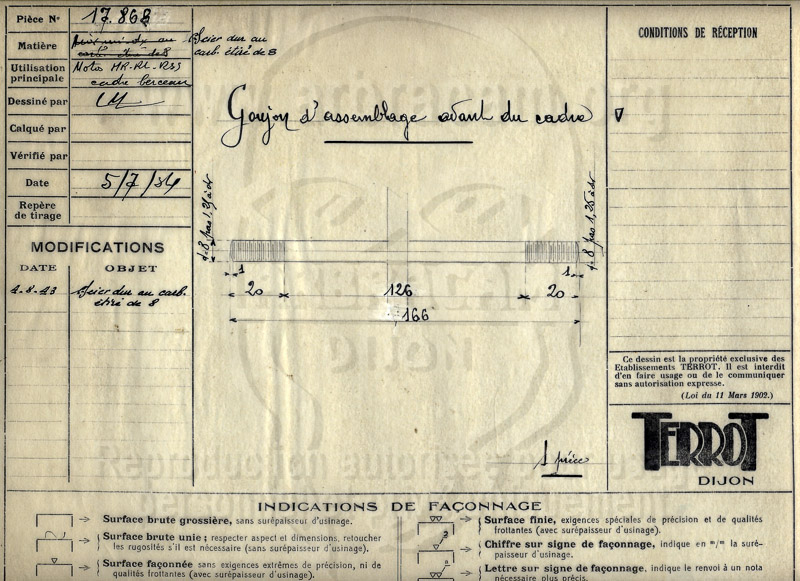 Pièce N° 17.868
Matière
Acier dur au
carb. étiré de 8
Utilisation
principale
Motos HR-RL-RSS
cadre berceau
Dessiné par
Calqué par
Vérifié par
Date 5/7/34
Repère
de tirage
MODIFICATIONS
DATE OBJET
4-8-43 Acier dur au carb.
étiré de 8
Goujon d'assemblage avant du cadre
d=8 pas 1,25 à dr
d=8 pas 1,25 à dr
1 1
20 126 20
166
1 pièce
CONDITIONS DE RÉCEPTION
Ce dessin est la propriété exclusive des
Etablissements TERROT. Il est interdit
d'en faire usage ou de le communiquer
sans autorisation expresse.
(Loi du 11 Mars 1902.)
TERROT
DIJON
INDICATIONS DE FAÇONNAGE
Surface brute grossière, sans surépaisseur d'usinage.
Surface brute unie ; respecter aspect et dimensions, retoucher
les rugosités s'il est nécessaire (sans surépaisseur d'usinage).
Surface façonnée sans exigences extrêmes de précision, ni de
qualités frottantes (avec surépaisseur d'usinage).
Surface finie, exigences spéciales de précision et de qualités
frottantes (avec surépaisseur d'usinage).
Chiffre sur signe de façonnage, indique en m/m la suré-
paisseur d'usinage.
Lettre sur signe de façonnage, indique le renvoi à un nota
nécessaire plus précis.